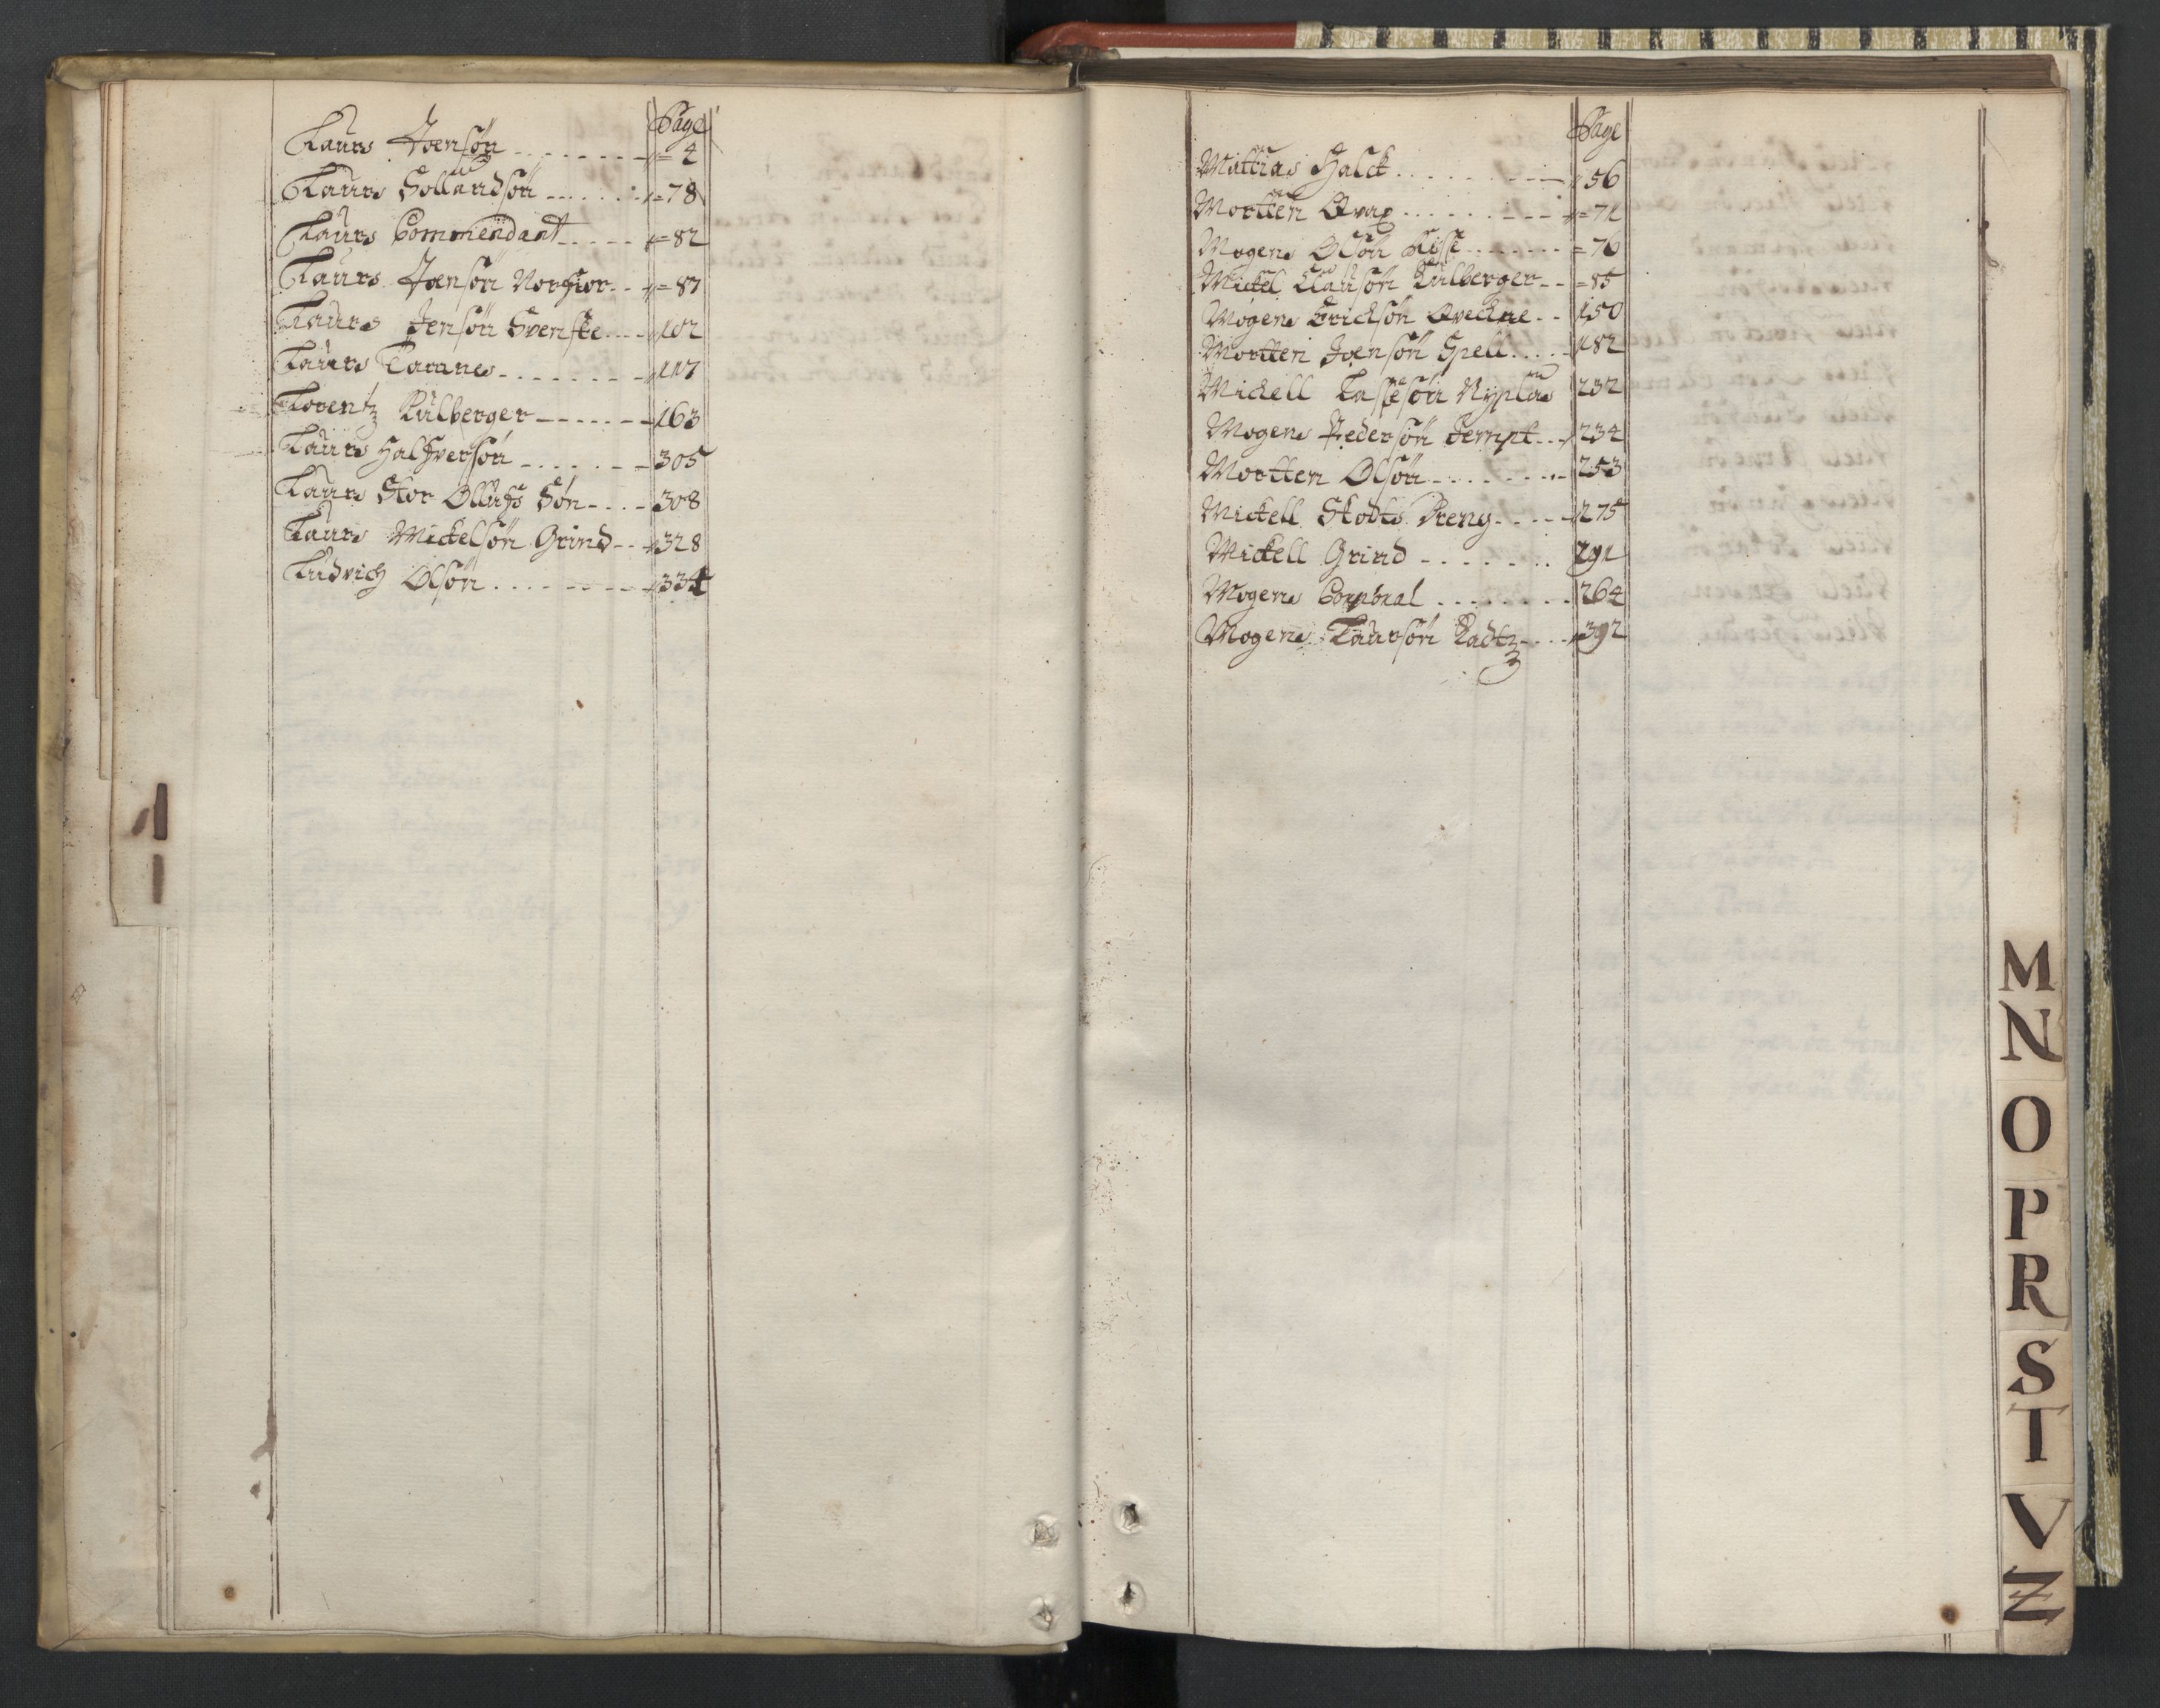 Page
Laurs Joensön - - - - - - = 4
Laurs Hollandsön - - - - - = 78
Laurs Commendant - - - - = 82
Laurs Joensön Norhior - - = 87
Laurs Jensön Svenske - - - 102
Laurs Taranes - - - - - - 117
Lorentz Kulberger - - - - - 163
Laurs Halfversön - - - - - 305
Laurs Stor Olluffs Sön - - - - 308
Laurs Mickelsön Grind - - 328
Ludvich Olsön - - - - - - 334
Page
Mattias Halck - - - - - - 56
Mortten Qvap - - - - - - = 71
Mogens Olsön Kise - - - - - = 76
Mickel Clausön Kulberger - - = 85
Mogens Erichsön Qveckne - - 150
Mortten Joensön Spell - - - - 182
Mickell Lassesön Nyplas 232
Mogens Pedersön Jempt - - - 234
Mortten Olsön - - - - - - 253
Mickell Skodts Dreng - - - - 275
Mickell Grind - - - - - - 291
Mogens Corporal - - - - - - 264
Mogens Laursön Radtz - - - - 392
M
N
O
P
R
S
T
V
Z